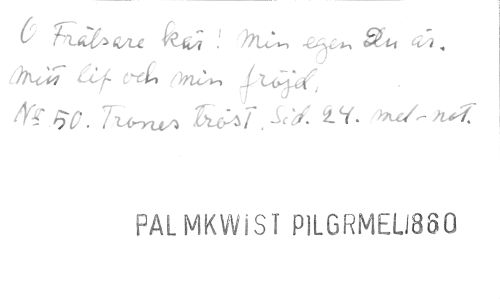 O Frälsare kär! Min egen Du är.
mitt lif och min fröjd,
No 50. Trones tröst. Sid. 24. med-not.
PALMKWIST PILGRMEL1860